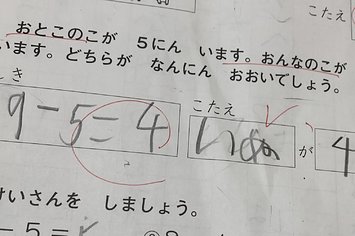 こたえ
おとこのこが 5にん います。おんなのこが
います。どちらが なんにん おおいでしょう。
しき
9-5=4
こたえ
が
4
けいさんを しましょう。
-5=